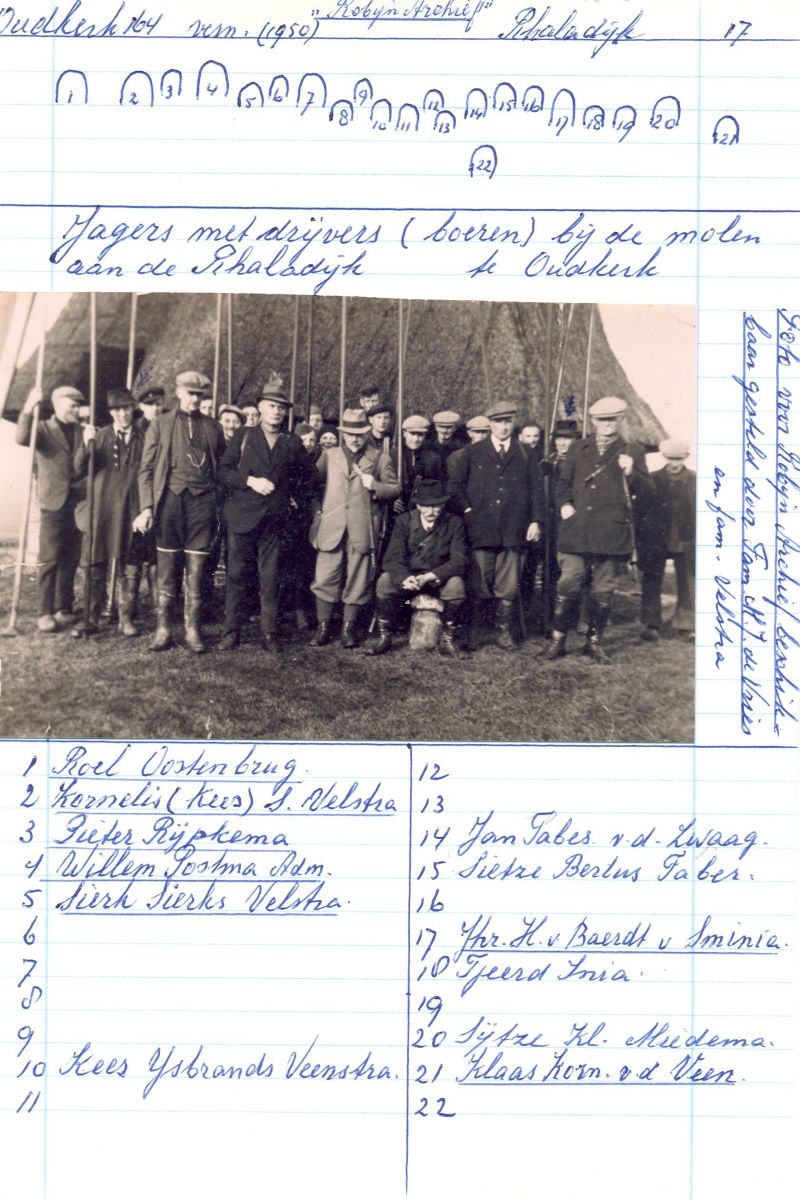 Oudkerk 164 vern. (1950) "Robijn Archief" Rhaladijk 17
1 2 3 4 5 6 7 8 9 10 11 12 13 14 15 16 17 18 19 20 21
22
Jagers met drijvers (boeren) bij de molen
aan de Rhaladijk te Oudkerk
Foto voor Robijn Archief beschik=
baar gesteld door Fam. de Vries
en fam. Velstra
1 Roel Oostenbrug.
2 Kornelis (Kees) S. Velstra
3 Pieter Rijpkema
4 Willem Postma Adm.
5 Sierk Sierks Velstra.
6
7
8
9
10 Kees Ysbrands Veenstra.
11
12
13
14 Jan Tabes v.d. Zwaag.
15 Sietze Bertus Faber.
16
17 Jhr. H. v Baerdt v Sminia.
18 Tjeerd Inia.
19
20 Sijtze Kl. Miedema.
21 Klaas Korn. v.d Veen.
22